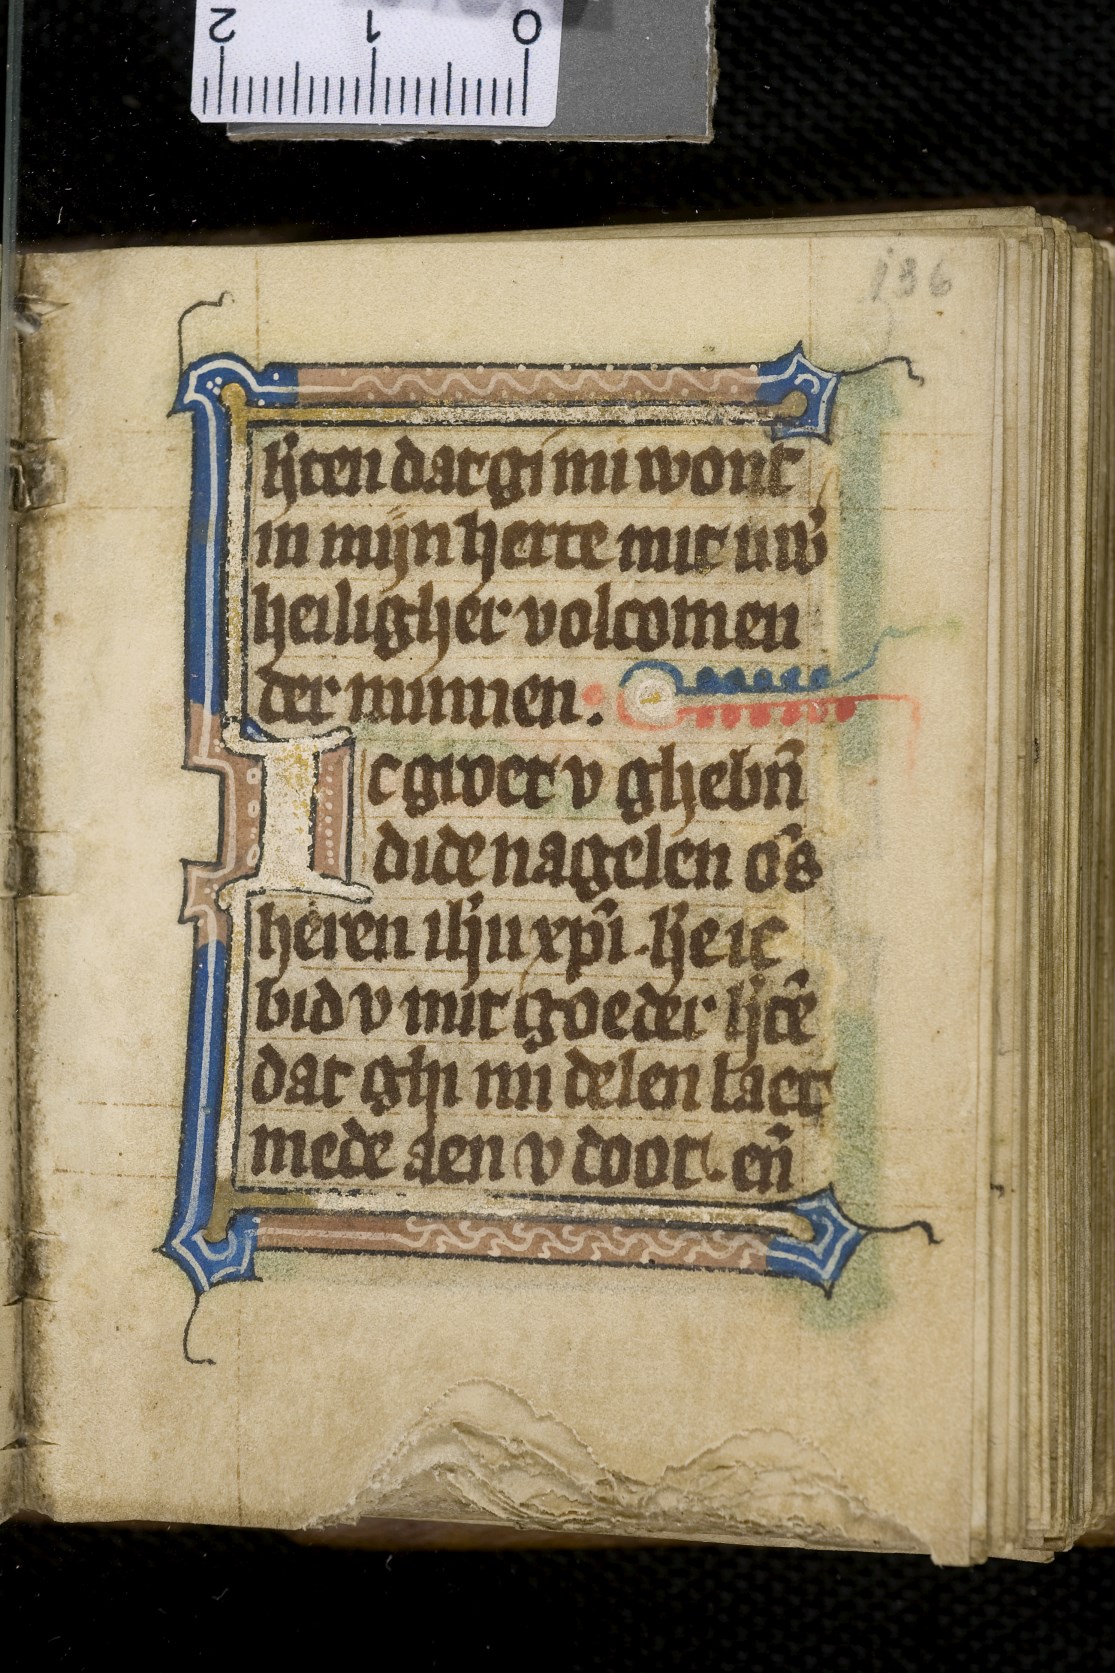 2 1 0
136
h̓ten dat gi mi wont
in mijn herte mit uw̓
heiligher volcomen
der minnen.
Ic gruet v ghebn̄
didenagelen o᷒s
heren ih̓u xp̄i. h̓e ic
bid v mit goeder h̓tē
dat ghi mi delen laet
mede aen v doot. en̄